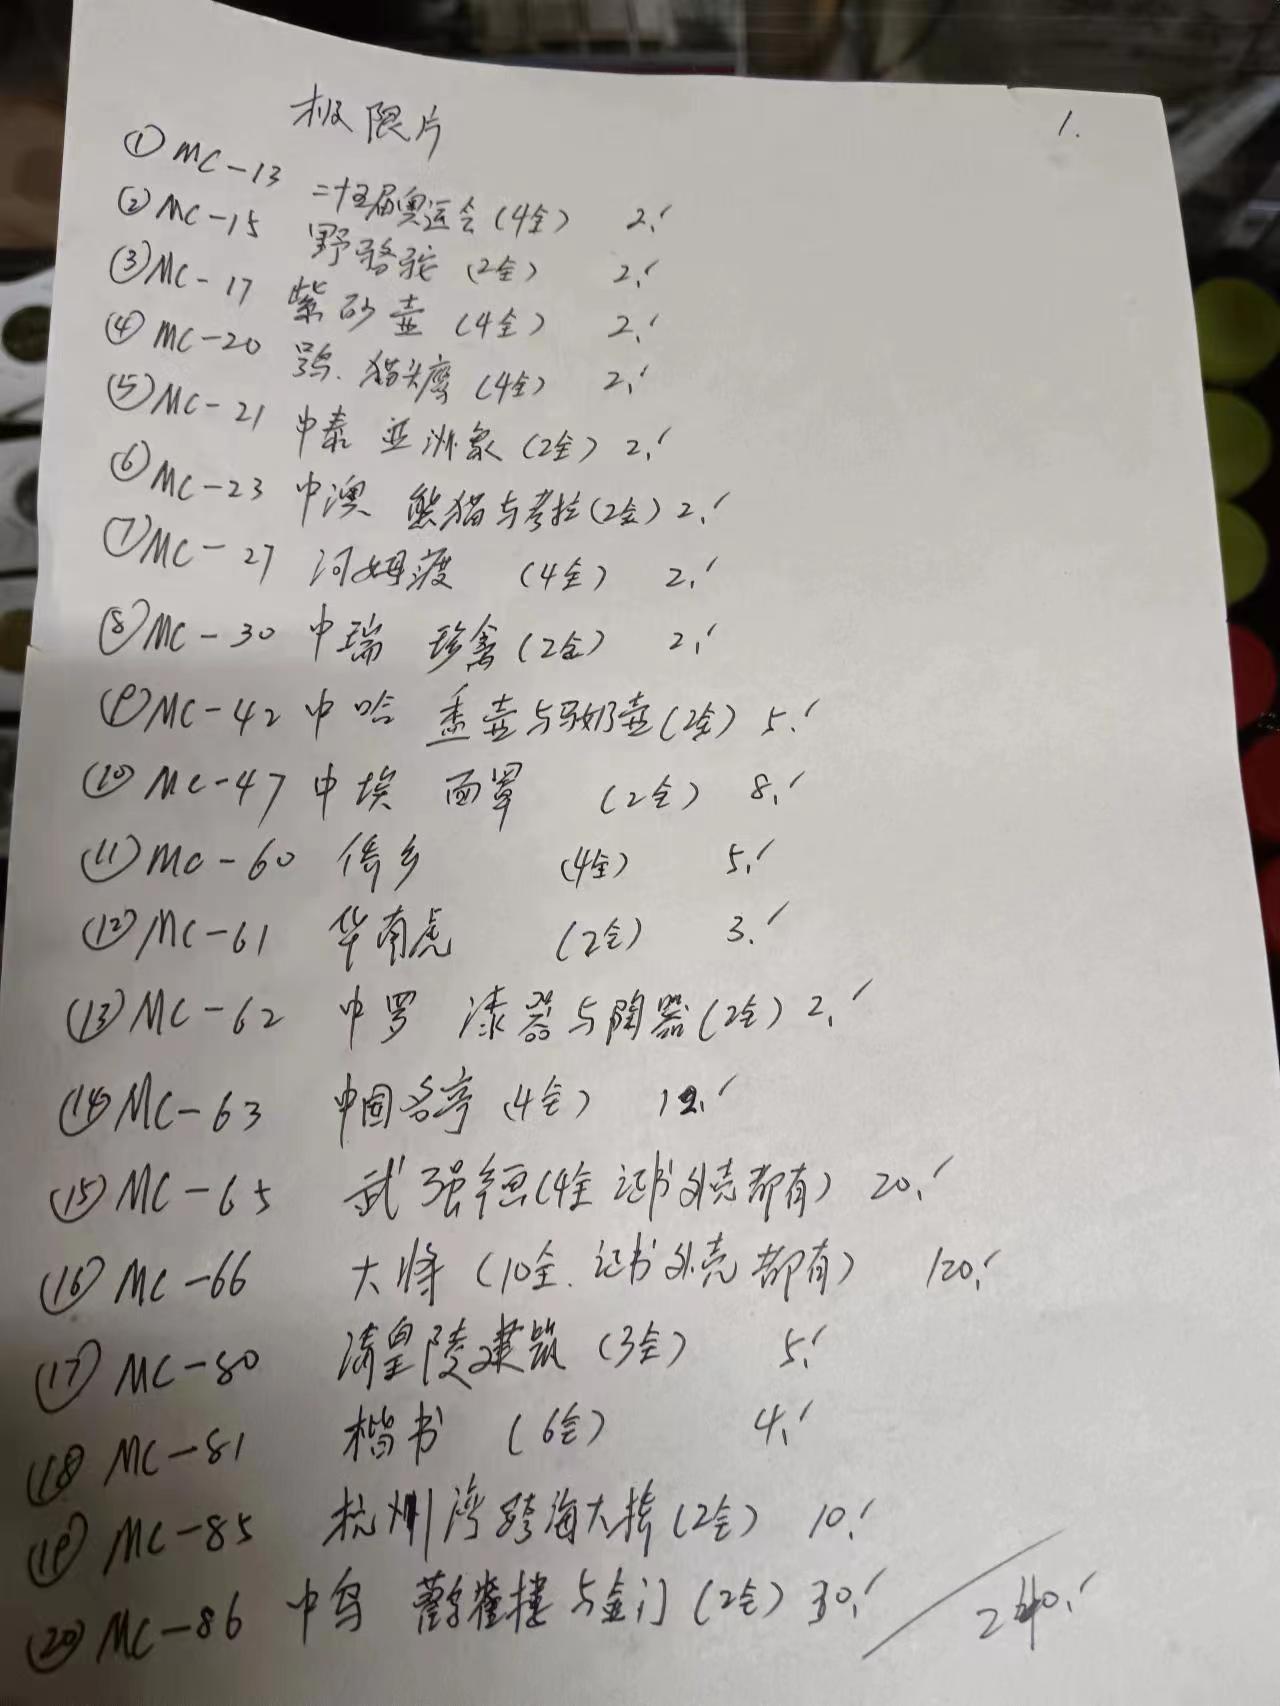 极限片
1.
① MC-13 二十五届奥运会(4全) 2.
② MC-15 野骆驼 (2全) 2.
③ MC-17 紫砂壶 (4全) 2.
④ MC-20 鸮.猫头鹰 (4全) 2.
⑤ MC-21 中泰 亚洲象 (2全) 2.
⑥ MC-23 中澳 熊猫与考拉 (2全) 2.
⑦ MC-27 河姆渡 (4全) 2.
⑧ MC-30 中瑞 珍禽 (2全) 2.
⑨ MC-42 中哈 壶与马奶壶 (2全) 5.
⑩ MC-47 中埃 面罩 (2全) 8.
⑪ MC-60 侨乡 (4全) 5.
⑫ MC-61 华南虎 (2全) 3.
⑬ MC-62 中罗 漆器与陶器 (2全) 2.
⑭ MC-63 中国名亭 (4全)
⑮ MC-65 武强年画(4全 证书外壳都有) 20.
⑯ MC-66 大将 (10全.证书外壳都有) 120.
⑰ MC-80 清皇陵建筑 (3全) 5.
⑱ MC-81 楷书 (6全) 4.
⑲ MC-85 杭州湾跨海大桥 (2全) 10.
⑳ MC-86 中乌 鹳雀楼与金门 (2全) 30.